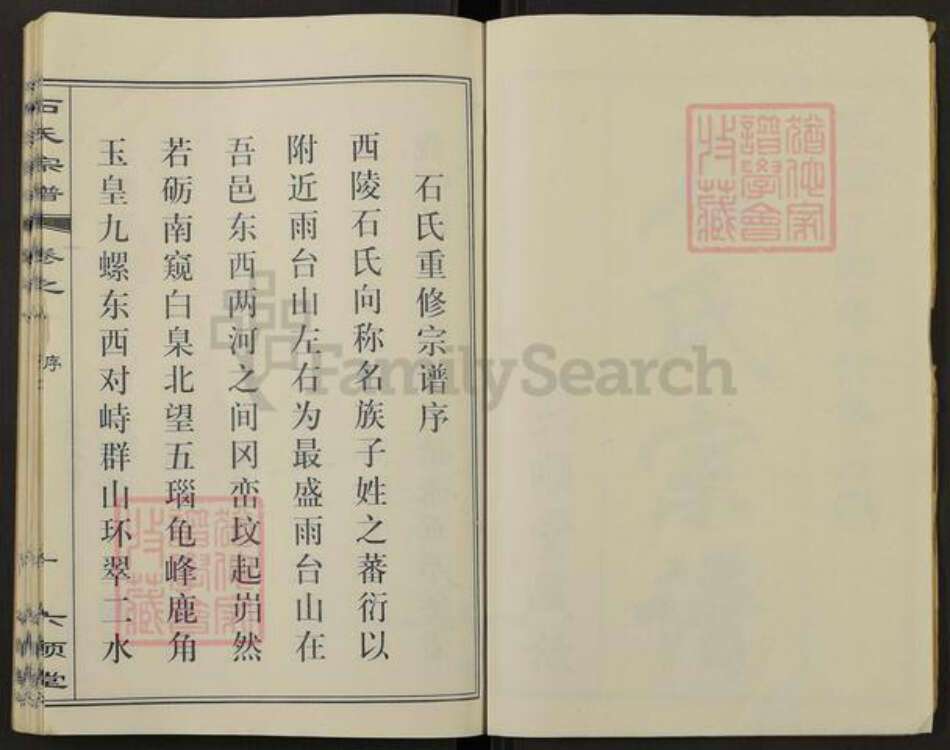 石氏重修宗谱序
西陵石氏向称名族子姓之蕃衍以
附近雨台山左右为最盛雨台山在
吾邑东西两河之间冈峦坟起岿然
若砺南窥白臬北望五瑙龟峰鹿角
玉皇九螺东西对峙群山环翠二水
石氏宗谱
卷之
序
一
八顺堂
FamilySearch
猶他家
譜學會
收藏
猶他家
譜學會
收藏